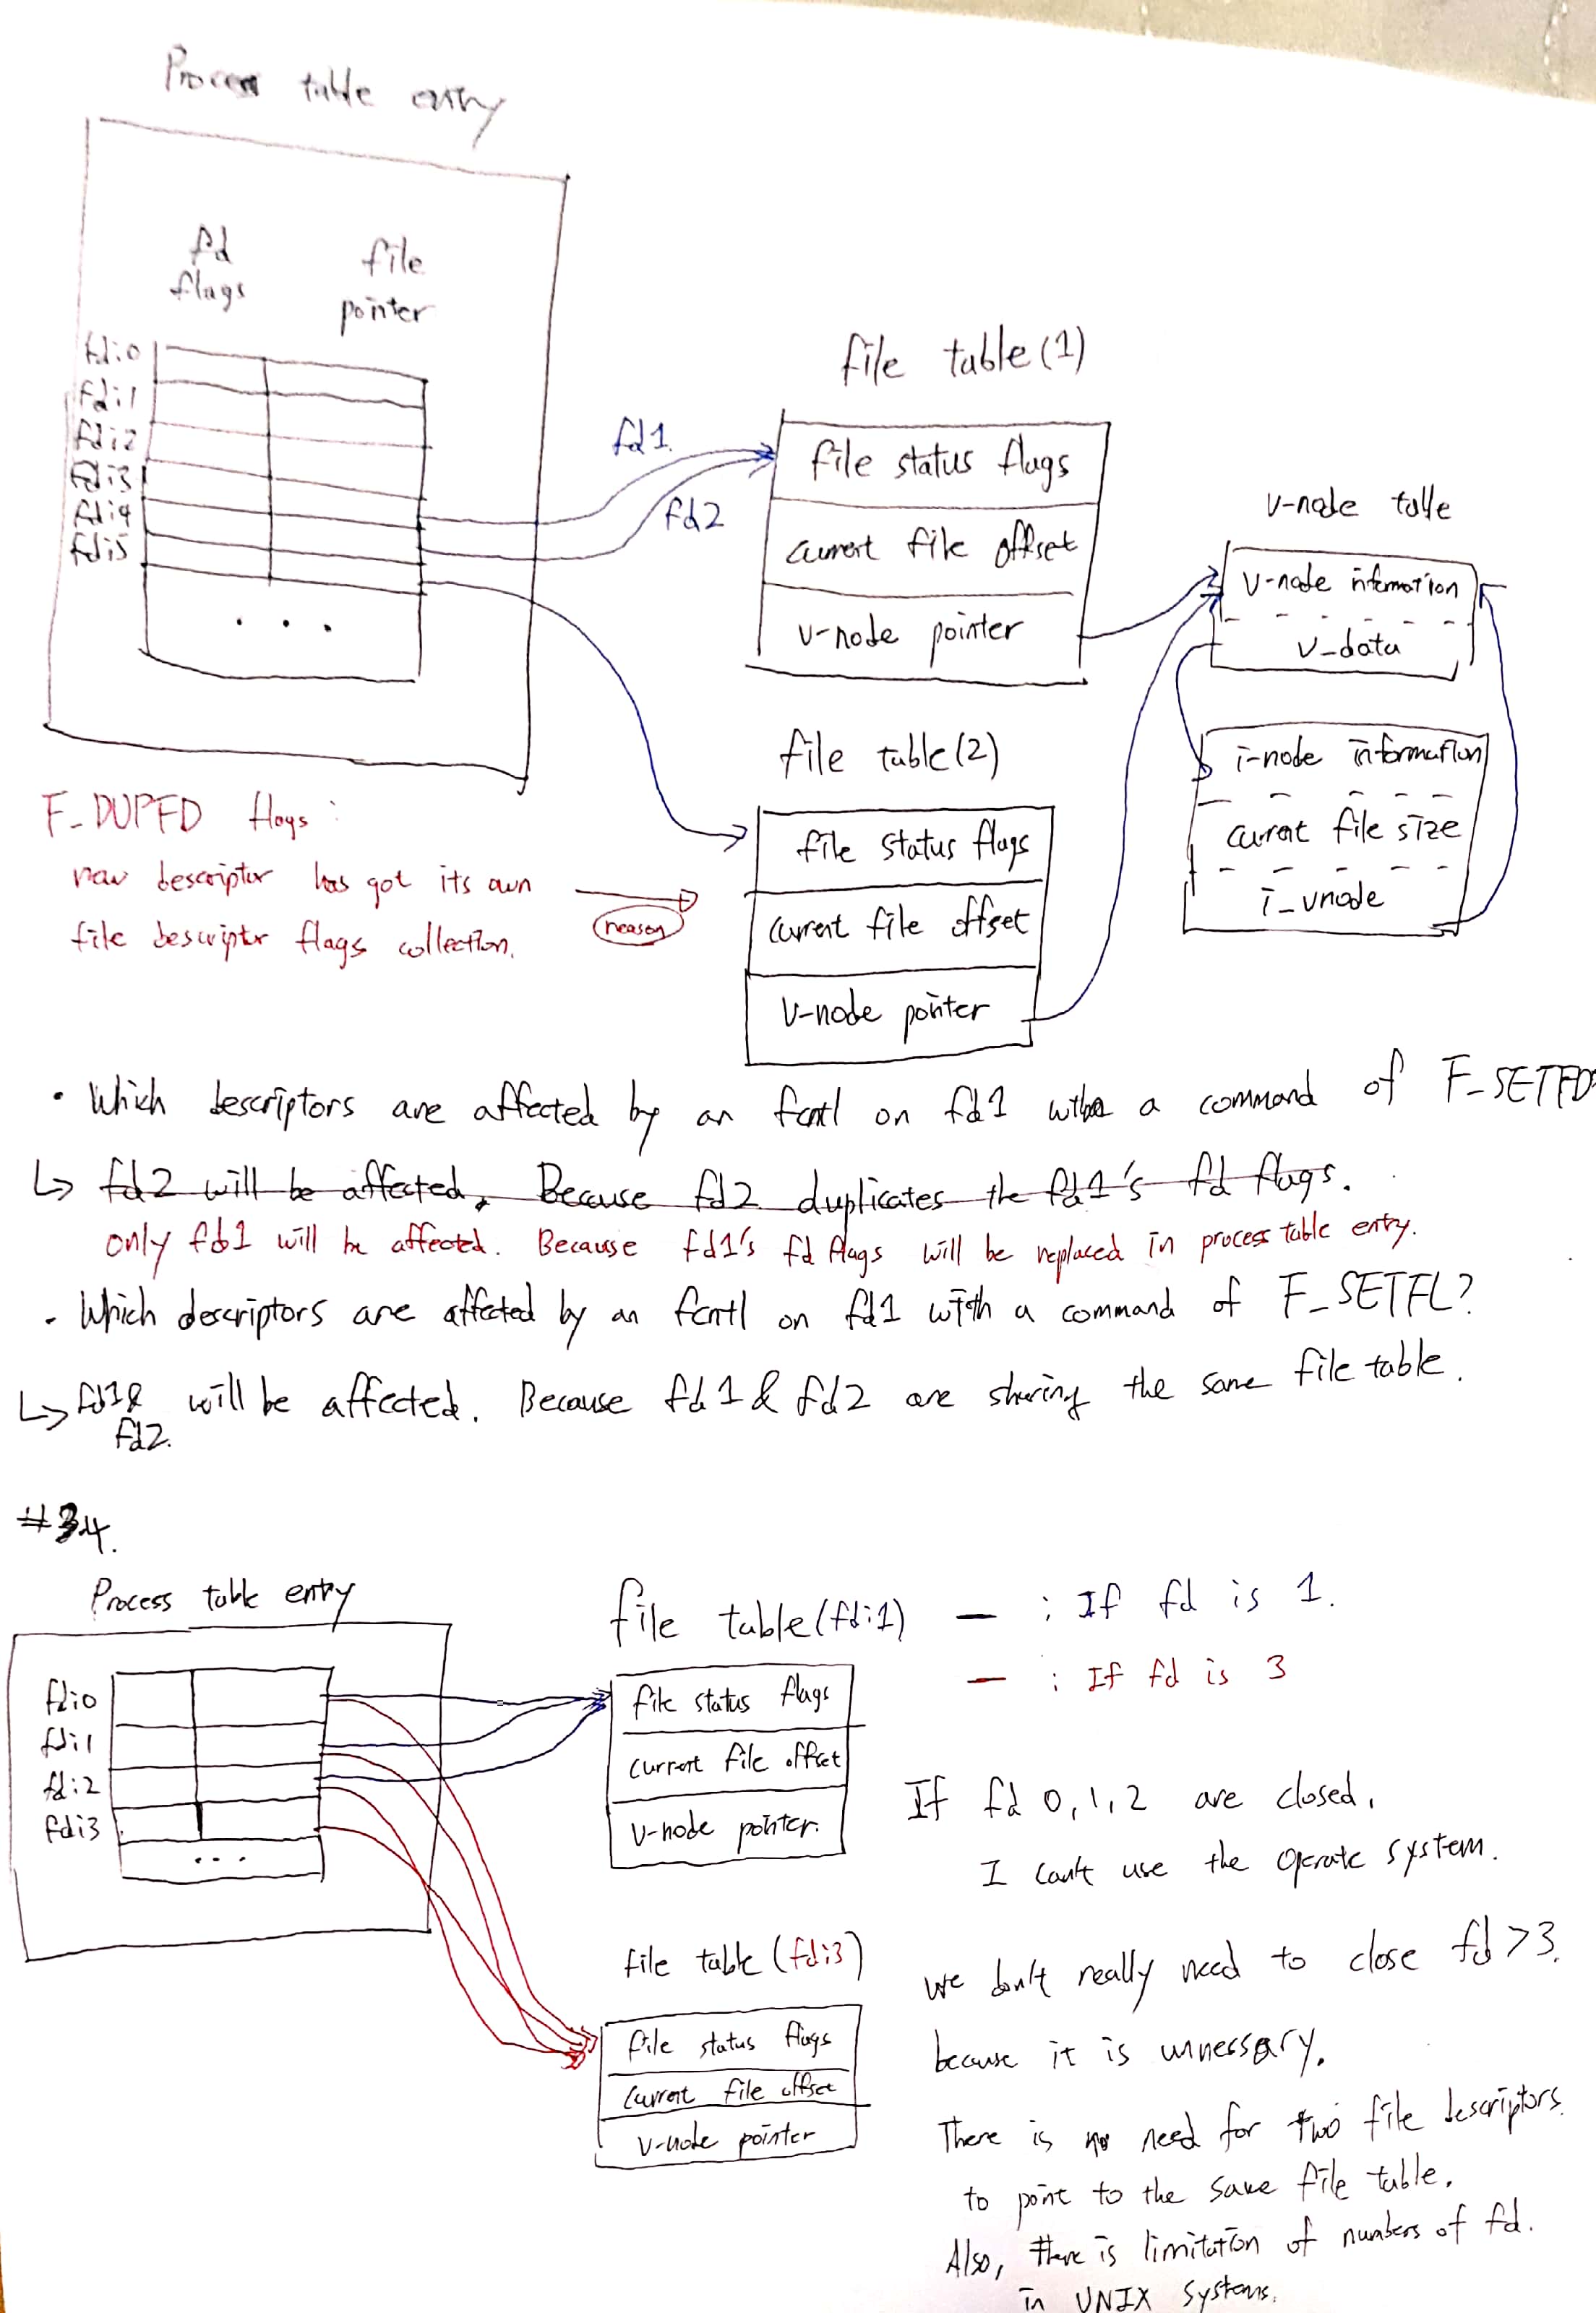 Process table entry
fd flags
file pointer
fdi0
fdi1
fdi2
fdi3
fdi4
fdi5
. . .
fd1
fd2
file table(1)
file status flags
current file offset
v-node pointer
v-node table
v-node information
v_data
i-node information
current file size
i_vnode
file table(2)
file status flags
current file offset
v-node pointer
F_DUPFD flags :
new descriptor has got its own
file descriptor flags collection.
reason
• Which descriptors are affected by an fcntl on fd1 with a command of F_SETFD
↳ fd2 will be affected. Because fd2 duplicates the fd1's fd flags.
only fd1 will be affected. Because fd1's fd flags will be replaced in process table entry.
• Which descriptors are affected by an fcntl on fd1 with a command of F_SETFL?
↳ fd1 & fd2. will be affected. Because fd1 & fd2 are sharing the same file table.
#34.
Process table entry
fdi0
fdi1
fdi2
fdi3
. . .
file table(fdi1)
file status flags
current file offset
v-node pointer.
— : If fd is 1.
— : If fd is 3
If fd 0,1,2 are closed,
I can't use the operate system.
file table (fdi3)
file status flags
current file offset
v-node pointer
we don't really need to close fd > 3.
because it is unnessary.
There is no need for two file descriptors.
to point to the same file table.
Also, there is limitation of numbers of fd.
in UNIX systems.